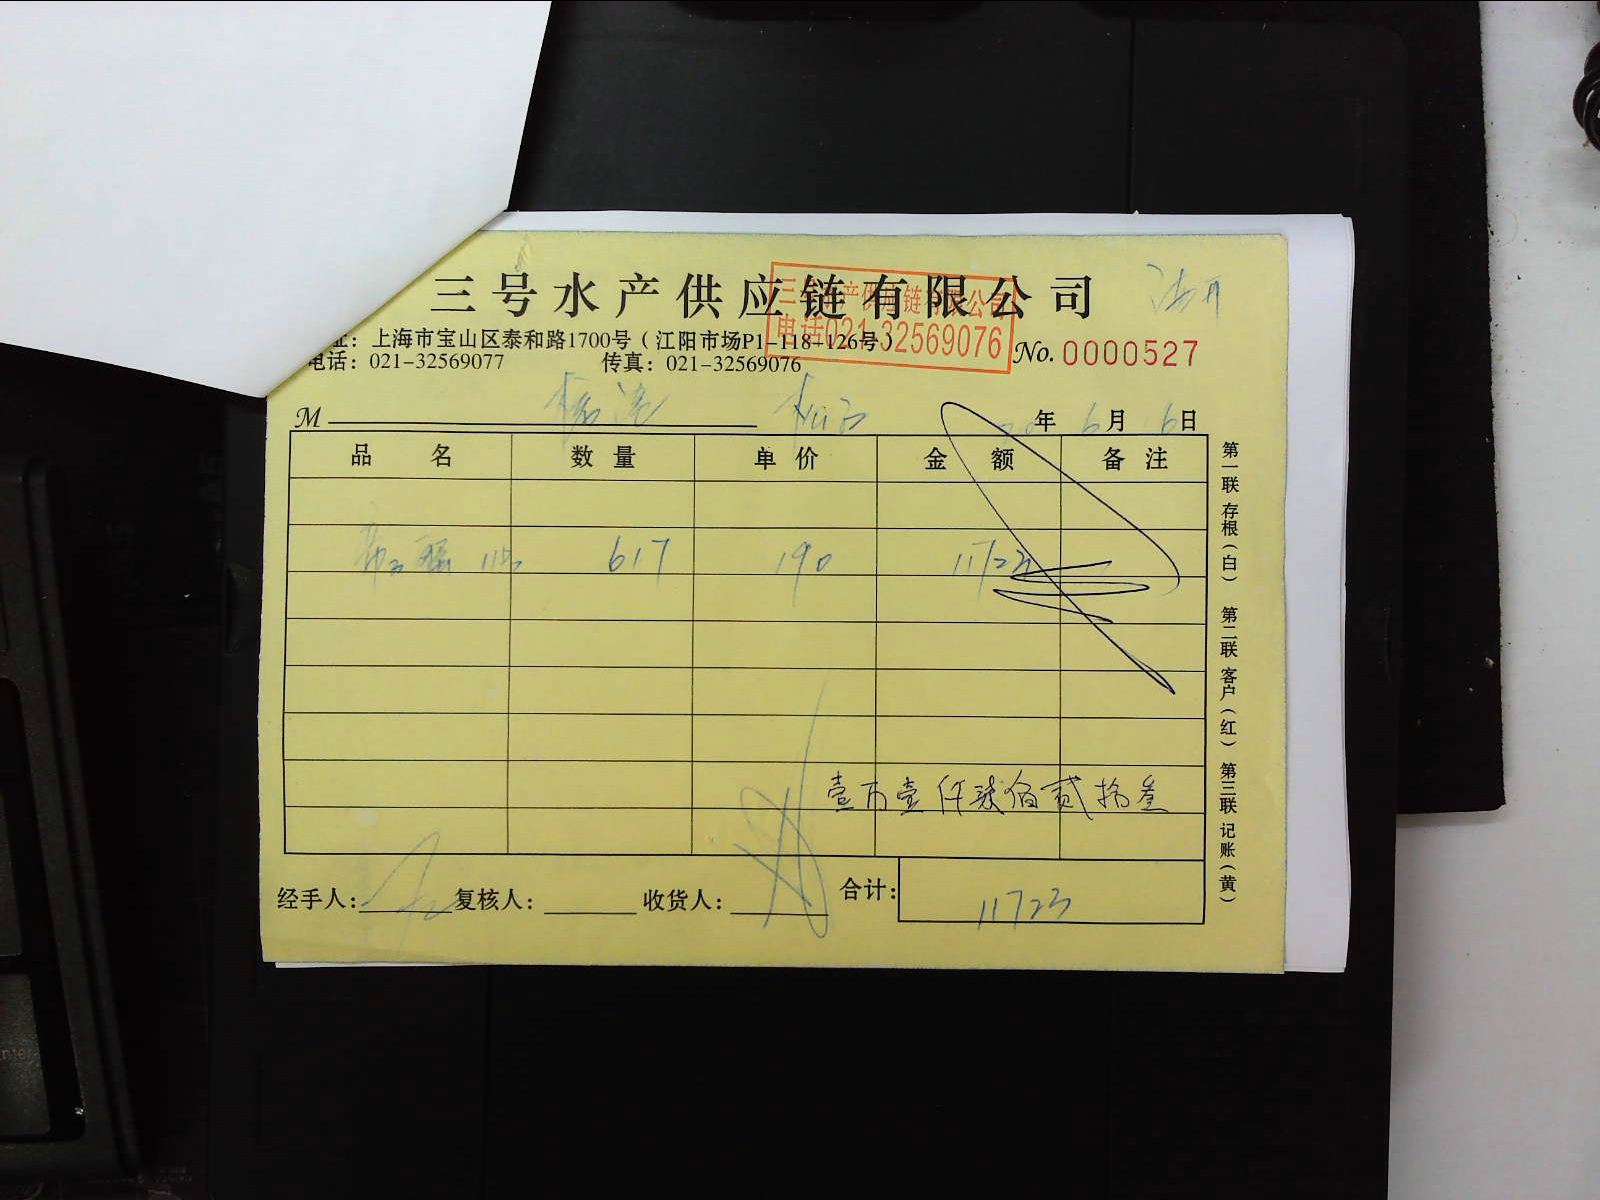 三号水产供应链有限公司
三号水产供应链有限公司
电话021-32569076
址：上海市宝山区泰和路1700号（江阳市场P1-118-126号）
电话：021-32569077 传真：021-32569076
No. 0000527
M 年 6月 6日
品名 数量 单价 金额 备注
617 190 11723
壹万壹仟柒佰贰拾叁
经手人： 复核人： 收货人： 合计： 11723
第一联 存根（白） 第二联 客户（红） 第三联 记账（黄）